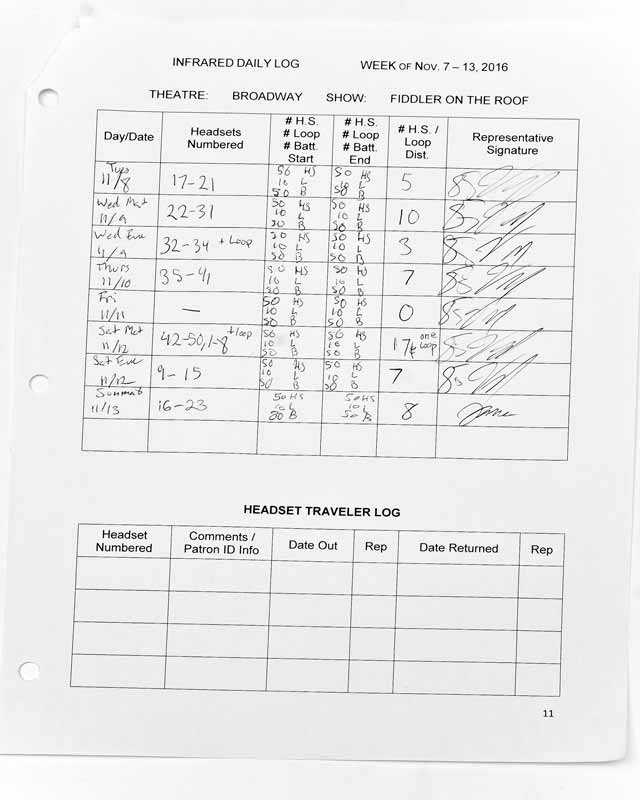 INFRARED DAILY LOG WEEK OF NOV. 7 – 13, 2016
THEATRE: BROADWAY SHOW: FIDDLER ON THE ROOF
Day/Date Headsets Numbered # H.S. # Loop # Batt. Start # H.S. # Loop # Batt. End # H.S. / Loop Dist. Representative Signature
Tues 11/8 17-21 50 HS 10 L 50 B 50 HS 10 L 50 B 5
Wed Mat 11/9 22-31 50 HS 10 L 50 B 50 HS 10 L 50 B 10
Wed Eve 11/9 32-34 + Loop 50 HS 10 L 50 B 50 HS 10 L 50 B 3
Thurs 11/10 35-41 50 HS 10 L 50 B 50 HS 10 L 50 B 7
Fri 11/11 — 50 HS 10 L 50 B 50 HS 10 L 50 B 0
Sat Mat 11/12 42-50, 1-8 + loop 50 HS 10 L 50 B 50 HS 10 L 50 B 17 & one Loop
Sat Eve 11/12 9-15 50 HS 10 L 50 B 50 HS 10 L 50 B 7
Sunmat 11/13 16-23 50 HS 10 L 50 B 50 HS 10 L 50 B 8
HEADSET TRAVELER LOG
Headset Numbered Comments / Patron ID Info Date Out Rep Date Returned Rep
11